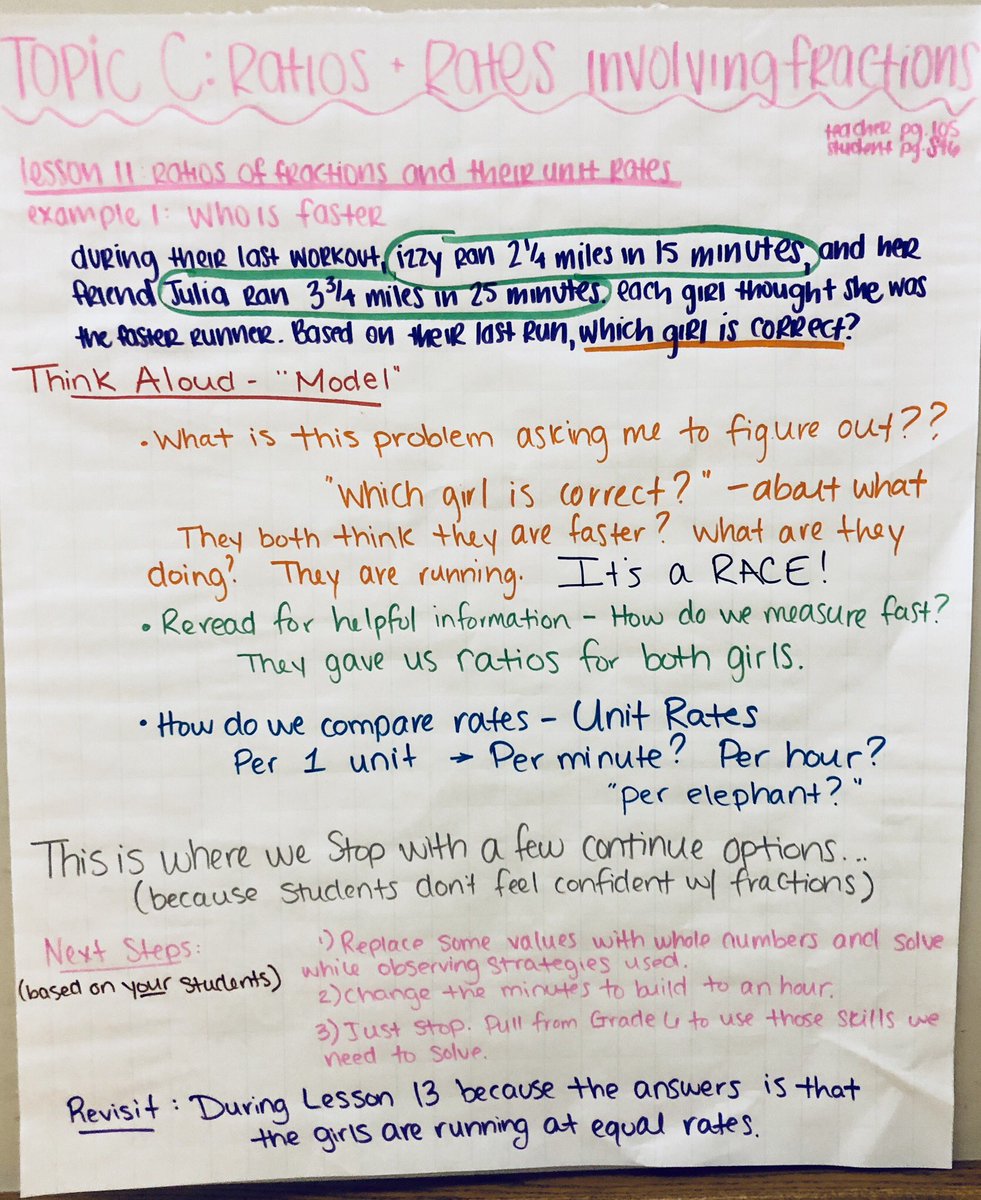 TOPIC C: RATIOS + RATES INVOLVING FRACTIONS
teacher pg. 105
student pg. S46
lesson 11: RATIOS of fractions and their unit Rates
example 1: Who is faster
during their last workout, izzy ran 2 1/4 miles in 15 minutes, and her
friend Julia ran 3 3/4 miles in 25 minutes. each girl thought she was
the faster runner. Based on their last run, which girl is correct?
Think Aloud - "Model"
• What is this problem asking me to figure out??
"Which girl is correct?" - about what
They both think they are faster? What are they
doing? They are running. It's a RACE!
• Reread for helpful information - How do we measure fast?
They gave us ratios for both girls.
• How do we compare rates - Unit Rates
Per 1 unit → Per minute? Per hour?
"per elephant?"
This is where we Stop with a few continue options...
(because students don't feel confident w/ fractions)
Next Steps: 1) Replace some values with whole numbers and solve
(based on your students) while observing strategies used.
2) Change the minutes to build to an hour.
3) Just Stop. Pull from Grade 6 to use those skills we
need to solve.
Revisit: During Lesson 13 because the answers is that
the girls are running at equal rates.